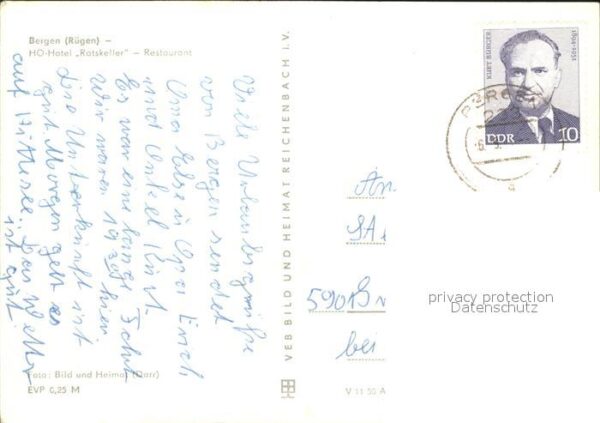 Bergen (Rügen) –
HO-Hotel „Ratskeller" – Restaurant
Viele Urlaubsgrüße
von Bergen sendet
Oma Else u. Opa Erich
und Onkel Kurt.
Es war eine lange Fahrt
Wir waren 19 Uhr hier.
Die Unterkunft ist
gut. Morgen geht es
auf Hiddensee. Das Wetter
ist gut
Foto: Bild und Heimat (Darr)
EVP 0,25 M
VEB BILD UND HEIMAT REICHENBACH I. V.
V 11 50 A
KURT BÜRGER
1894-1951
DDR
10
An
5901
bei
privacy protection
Datenschutz